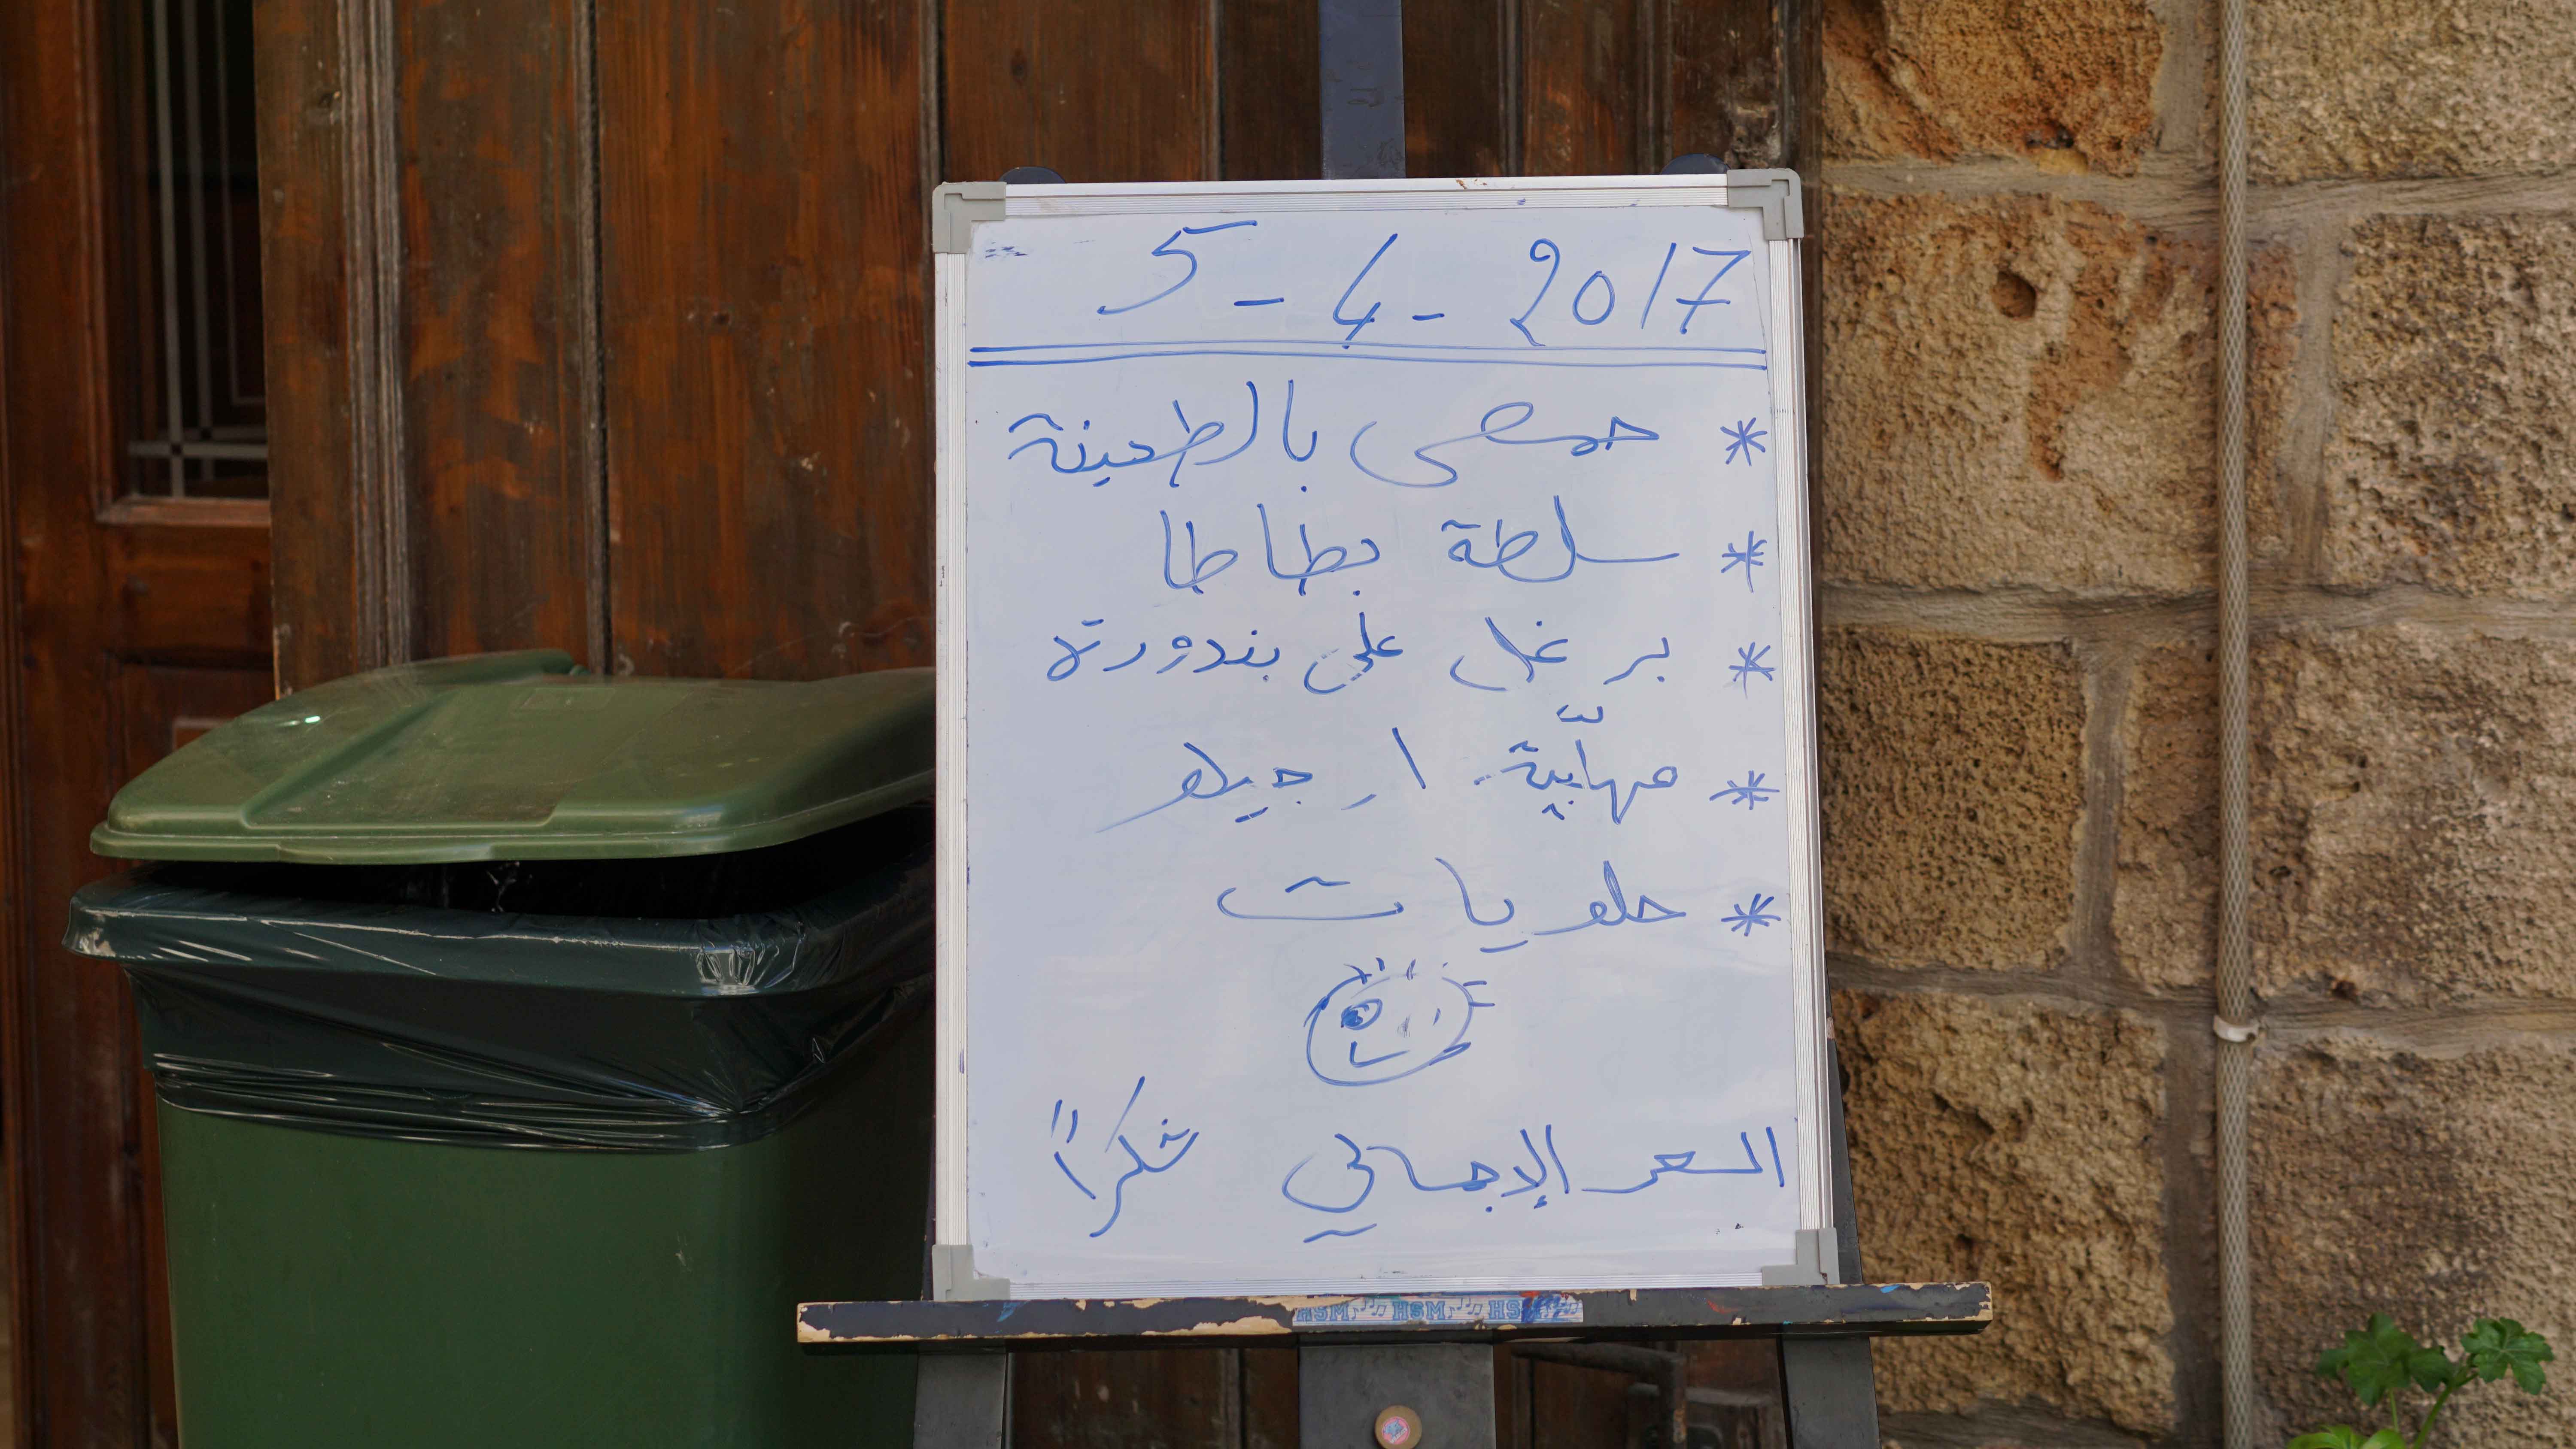 5 - 4 - 2017
* حمص بالطحينة
* سلطة بطاطا
* برغل على بندورة
* مهلبيّة / جيلو
* حلويات
السعر الإجمالي شكراً
HSM HSM HSM